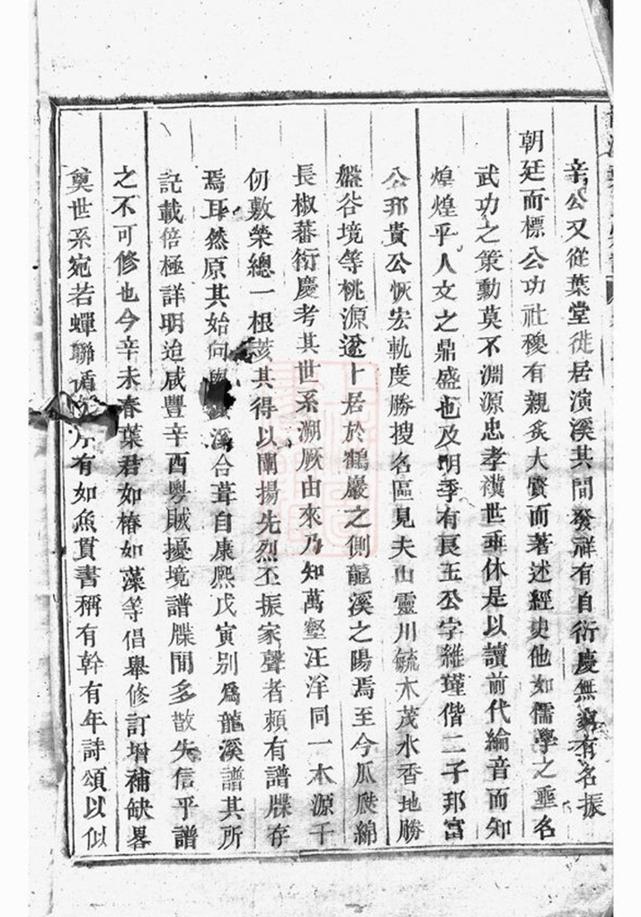 辛公又從葉堂徙居演溪其間發祥有自衍慶無窮有名振
朝廷而標公功社稷有親炙大賓而著述經史他如儒學之垂名
武功之策勳莫不淵源忠孝禩世垂休是以讀前代綸音而知
煌煌乎人文之鼎盛也及明季有良玉公字維瑾偕二子邦富
公邦貴公恢宏軌度勝搜名區見夫山靈川毓木茂水香地勝
盤谷境等桃源遂卜居於鶴巖之側龍溪之陽焉至今瓜瓞綿
長椒蕃衍慶考其世系溯厥由來乃知萬壑汪洋同一木源千
仞敷榮總一根荄其得以闡揚先烈丕振家聲者賴有譜牒存
焉耳然原其始向與溪合葺自康熙戊寅別為龍溪譜其所
記載倍極詳明迨咸豐辛酉粵賊擾境譜牒間多散失信乎譜
之不可修也今辛未春葉君如椿如藻等倡舉修訂增補缺畧
奠世系宛若蟬聯循有如魚貫書稱有幹有年詩頌以似